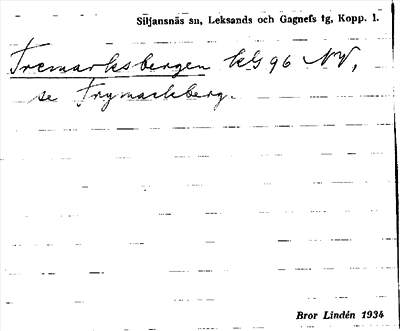 Siljansnäs sn, Leksands och Gagnefs tg, Kopp. l.
Tremarksbergen kG 96 NV,
se Trymackberg.
Bror Lindén 1934